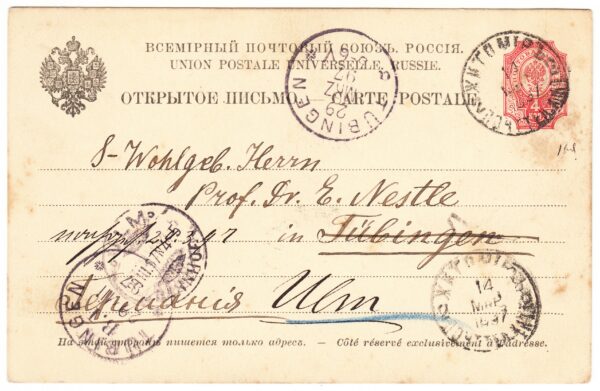 ВСЕМІРНЫЙ ПОЧТОВЫЙ СОЮЗЪ. РОССІЯ.
UNION POSTALE UNIVERSELLE. RUSSIE.
ОТКРЫТОЕ ПИСЬМО. — CARTE POSTALE.
TÜBINGEN
29 MRZ
ЖИТОМІРЪ
S-Wohlgeb. Herrn
Prof. Dr. E. Nestle
in Tübingen
Германія Ulm
ULM
TÜBINGEN
ЖИТОМІРЪ
14
МАР
1897
На этой сторонѣ пишется только адресъ. — Côté réservé exclusivement à l'adresse.